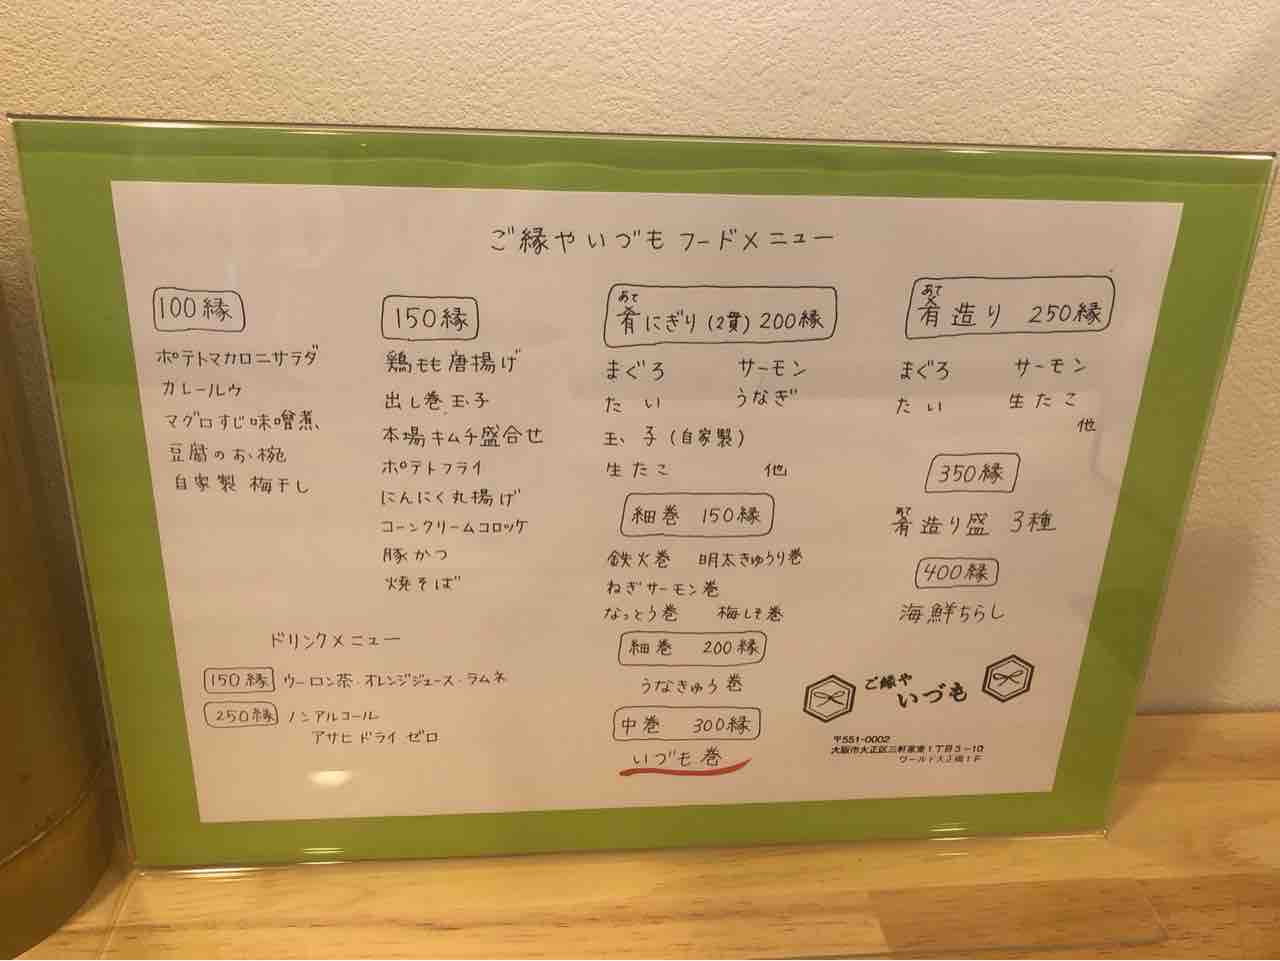 ご縁や いづも フードメニュー
100縁
ポテトマカロニサラダ
カレールゥ
マグロすじ味噌煮
豆腐のお椀
自家製 梅干し
150縁
鶏もも唐揚げ
出し巻玉子
本場キムチ盛合せ
ポテトフライ
にんにく丸揚げ
コーンクリームコロッケ
豚かつ
焼そば
あて
肴にぎり(2貫) 200縁
まぐろ サーモン
たい うなぎ
玉子(自家製)
生たこ 他
細巻 150縁
鉄火巻 明太きゅうり巻
ねぎサーモン巻
なっとう巻 梅しそ巻
細巻 200縁
うなきゅう巻
中巻 300縁
いづも巻
あて
肴造り 250縁
まぐろ サーモン
たい 生たこ
他
350縁
あて
肴造り盛 3種
400縁
海鮮ちらし
ドリンクメニュー
150縁 ウーロン茶・オレンジジュース・ラムネ
250縁 ノンアルコール
アサヒドライゼロ
ご縁や
いづも
〒551-0002
大阪市大正区三軒家東1丁目3-10
ワールド大正橋1F